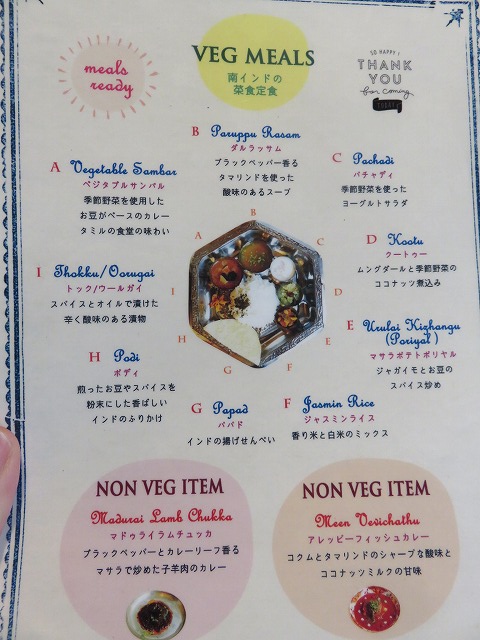 meals
ready
VEG MEALS
南インドの
菜食定食
SO HAPPY!
THANK
YOU
for coming
TODAY!
B Paruppu Rasam
ダルラッサム
ブラックペッパー香る
タマリンドを使った
酸味のあるスープ
A Vegetable Sambar
ベジタブルサンバル
季節野菜を使用した
お豆がベースのカレー
タミルの食堂の味わい
C Pachadi
パチャディ
季節野菜を使った
ヨーグルトサラダ
D Kootu
クートゥー
ムングダールと季節野菜の
ココナッツ煮込み
I Thokku/Oorugai
トック/ウールガイ
スパイスとオイルで漬けた
辛く酸味のある漬物
A
B
C
D
E
F
G
H
I
E Urulai Kizhangu
(Poriyal)
マサラポテトポリヤル
ジャガイモとお豆の
スパイス炒め
H Podi
ポディ
煎ったお豆やスパイスを
粉末にした香ばしい
インドのふりかけ
G Papad
パパド
インドの揚げせんべい
F Jasmin Rice
ジャスミンライス
香り米と白米のミックス
NON VEG ITEM
Madurai Lamb Chukka
マドゥライラムチュッカ
ブラックペッパーとカレーリーフ香る
マサラで炒めた子羊肉のカレー
NON VEG ITEM
Meen Vevichathu
アレッピーフィッシュカレー
コクムとタマリンドのシャープな酸味と
ココナッツミルクの甘味